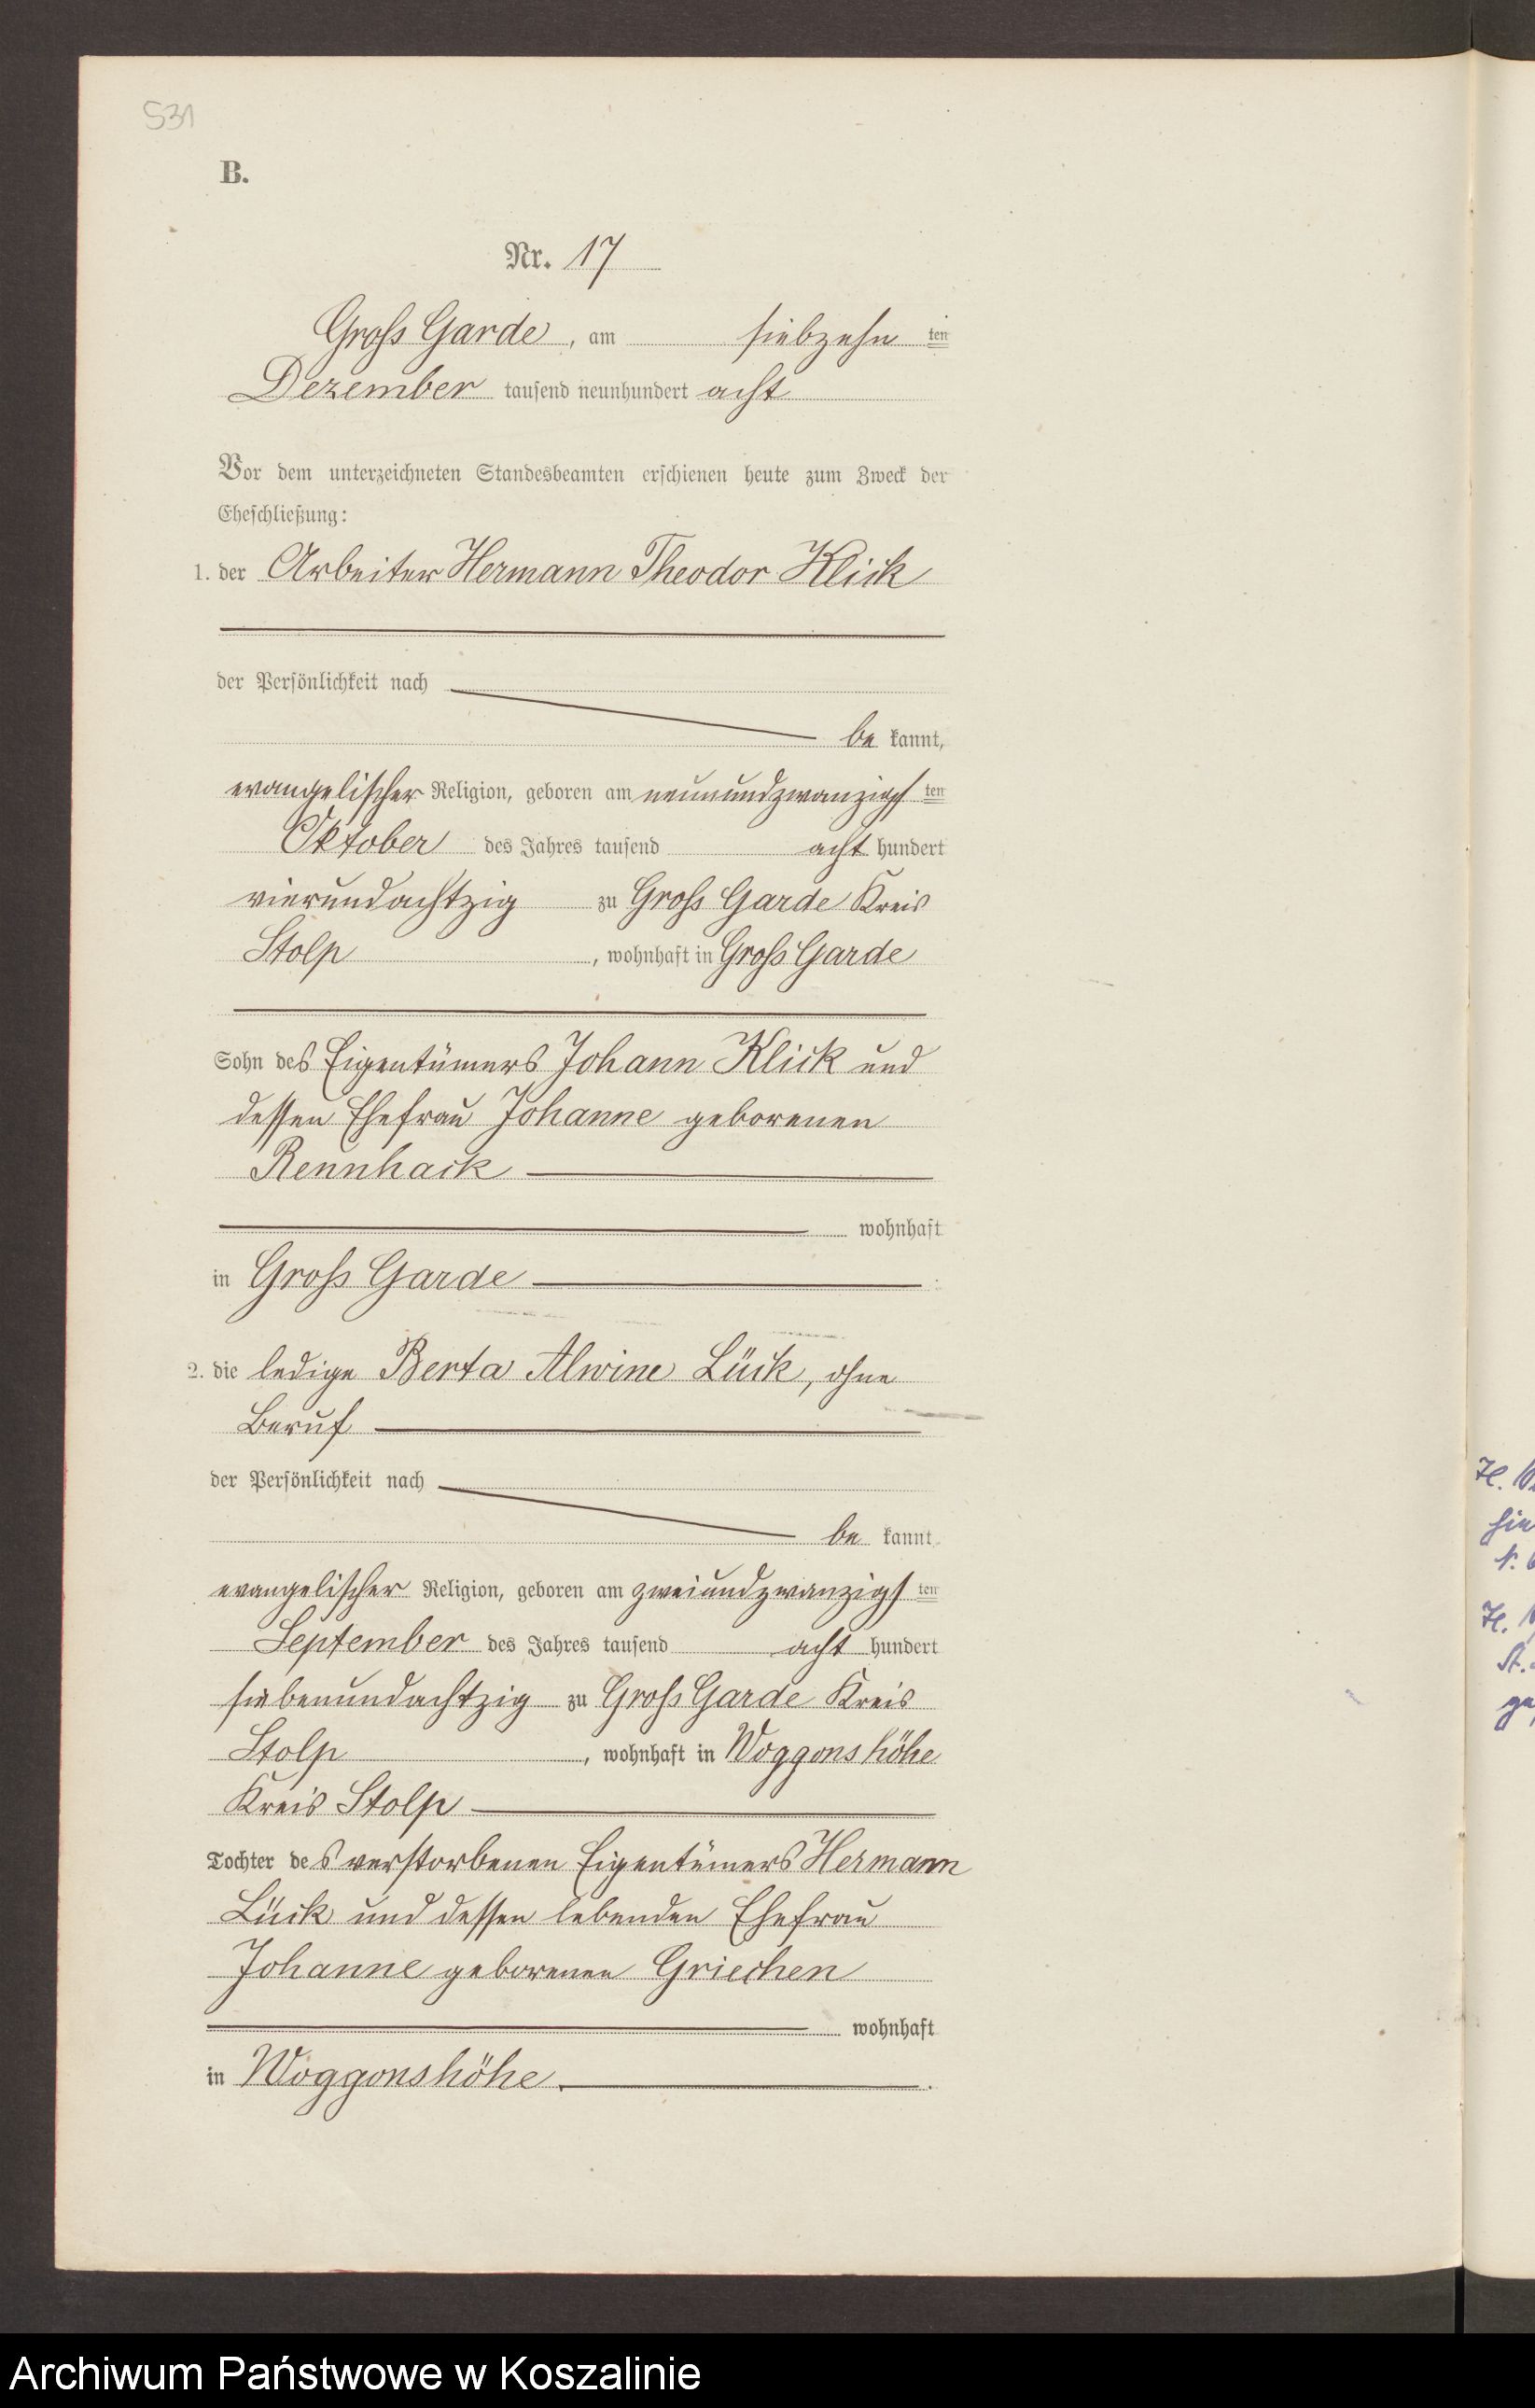 531
B.
Nr. 17
Gross Garde, am siebzehn ten
Dezember tausend neunhundert acht
Vor dem unterzeichneten Standesbeamten erschienen heute zum Zweck der
Eheschließung:
1. der Arbeiter Hermann Theodor Klick
der Persönlichkeit nach
be kannt,
evangelischer Religion, geboren am neunundzwanzigs ten
Oktober des Jahres tausend acht hundert
vierundachtzig zu Gross Garde Kreis
Stolp, wohnhaft in Gross Garde
Sohn des Eigentümers Johann Klick und
dessen Ehefrau Johanne geborenen
Rennhack
wohnhaft
in Gross Garde :
2. die ledige Berta Alwine Lück, ohne
Beruf
der Persönlichkeit nach
be kannt,
evangelischer Religion, geboren am zweiundzwanzigs ten
September des Jahres tausend acht hundert
siebenundachtzig zu Gross Garde Kreis
Stolp, wohnhaft in Woggonshöhe
Kreis Stolp
Tochter des verstorbenen Eigentümers Hermann
Lück und dessen lebenden Ehefrau
Johanne geborenen Griechen
wohnhaft
in Woggonshöhe.
Archiwum Państwowe w Koszalinie